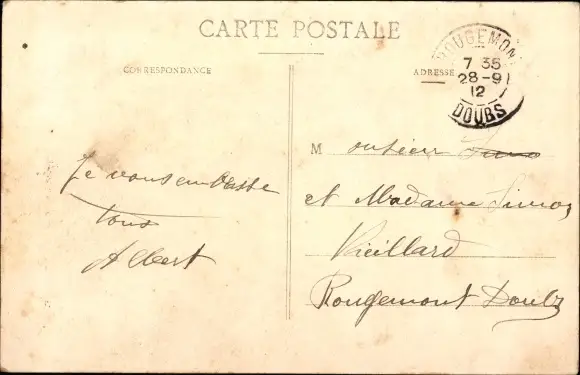 CARTE POSTALE
CORRESPONDANCE
ADRESSE
ROUGEMONT
7 35
28-9
12
DOUBS
Je vous embrasse
tous
Albert
Monsieur
et Madame Simon
Vieillard
Rougemont Doubs